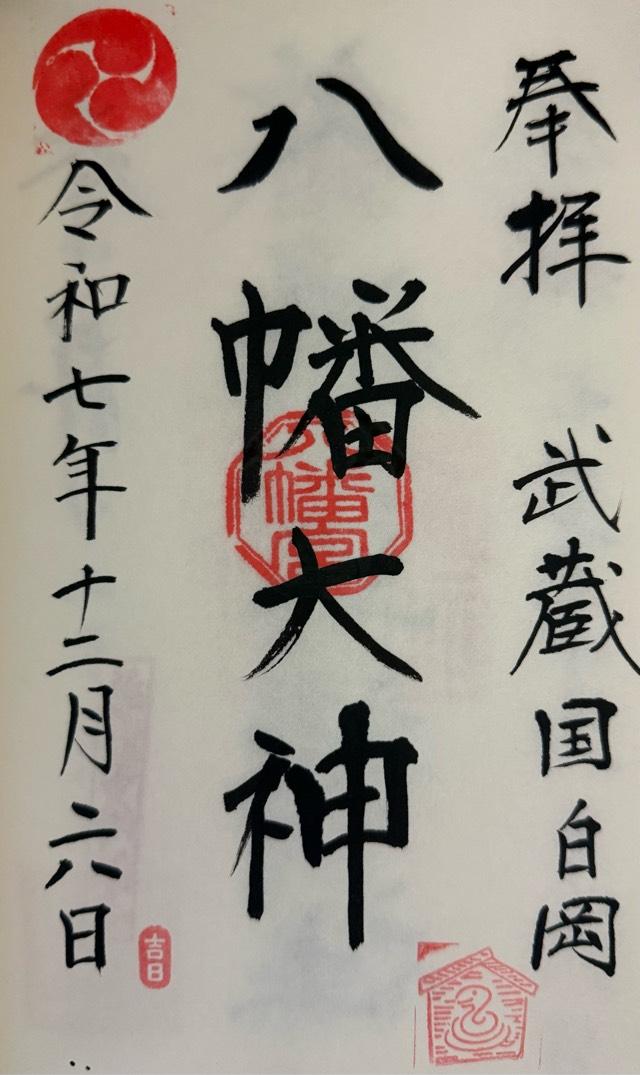 奉拝 武蔵国白岡
八幡大神
八幡宮
令和七年十二月二八日
吉日